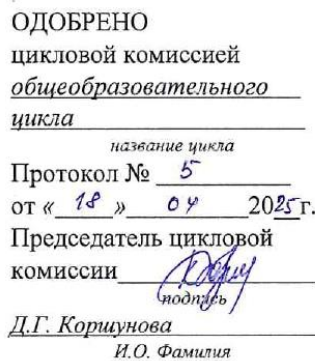 ОДОБРЕНО
цикловой комиссией
общеобразовательного
цикла
название цикла
Протокол № 5
от « 18 » 04 2025 г.
Председатель цикловой
комиссии
подпись
Д.Г. Коршунова
И.О. Фамилия